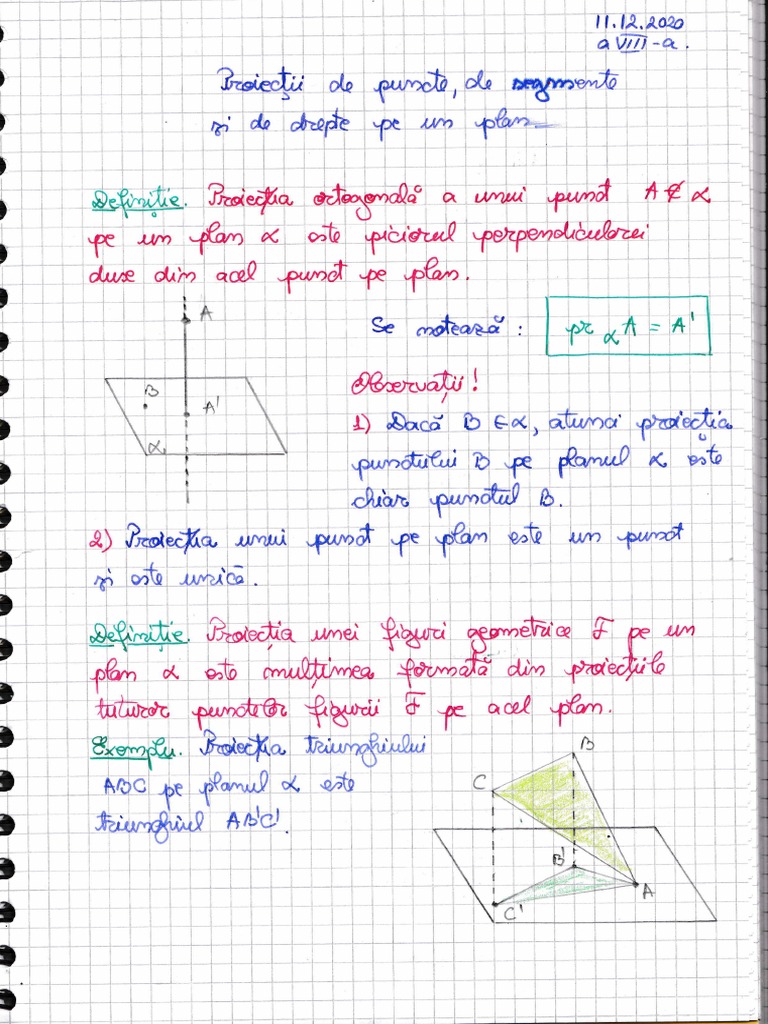 11.12.2020
a VIII-a.
Proiecții de puncte, de segmente
și de drepte pe un plan
Definiție. Proiecția ortogonală a unui punct A ∉ α
pe un plan α este piciorul perpendicularei
duse din acel punct pe plan.
A
Se notează: pr α A = A'
B
A'
α
Observații!
1) Dacă B ∈ α, atunci proiecția
punctului B pe planul α este
chiar punctul B.
2) Proiecția unui punct pe plan este un punct
și este unică.
Definiție. Proiecția unei figuri geometrice F pe un
plan α este mulțimea formată din proiecțiile
tuturor punctelor figurii F pe acel plan.
Exemplu. Proiecția triunghiului
ABC pe planul α este
triunghiul AB'C'.
B
C
B'
A
C'